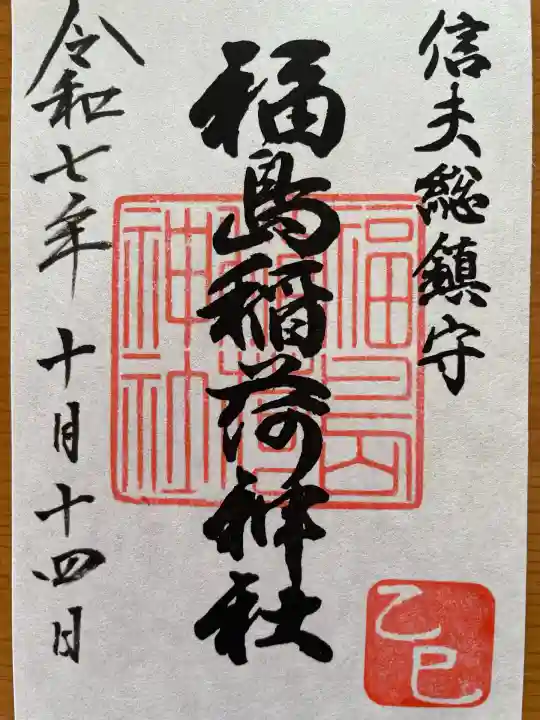 信夫総鎮守
福島稲荷神社
令和七年十月十四日
福島
稲荷
神社
乙巳